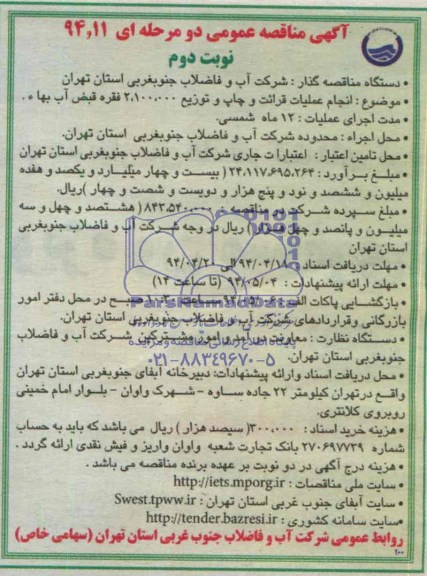 آگهی مناقصه عمومی دو مرحله ای ۹۴٫۱۱
نوبت دوم
• دستگاه مناقصه گذار : شرکت آب و فاضلاب جنوبغربی استان تهران
• موضوع : انجام عملیات قرائت و چاپ و توزیع ۲،۱۰۰،۰۰۰ فقره قبض آب بهاء .
• مدت اجرای عملیات : ۱۲ ماه شمسی.
• محل اجراء : محدوده شرکت آب و فاضلاب جنوبغربی استان تهران.
• محل تامین اعتبار : اعتبارات جاری شرکت آب و فاضلاب جنوبغربی استان تهران
• مبلغ برآورد : ۲۴،۱۱۷،۶۹۵،۲۶۴ ( بیست و چهار میلیارد و یکصد و هفده
میلیون و ششصد و نود و پنج هزار و دویست و شصت و چهار )ریال.
• مبلغ سپرده شرکت در مناقصه : ۸۴۳،۵۴۰،۰۰۰ ( هشتصد و چهل و سه
میلیون و پانصد و چهل هزار ) ریال در وجه شرکت آب و فاضلاب جنوبغربی
استان تهران
• مهلت دریافت اسناد : الی ۹۴/۰۴/۲۰
• مهلت ارائه پیشنهادات : ۹۴/۰۵/۰۴ (تا ساعت ۱۴)
• بازگشایی پاکات الف ساعت صبح در محل دفتر امور
بازرگانی وقراردادهای شرکت آب و فاضلاب جنوبغربی استان تهران.
• دستگاه نظارت : معاونت درآمد و امور مشترکین شرکت آب و فاضلاب
جنوبغربی استان تهران.
۰۲۱-۸۸۳۴۹۶۷۰-۵
• محل دریافت اسناد وارائه پیشنهادات: دبیرخانه آبفای جنوبغربی استان تهران
واقع درتهران کیلومتر ۲۲ جاده ساوه - شهرک واوان - بلوار امام خمینی
روبروی کلانتری.
• هزینه خرید اسناد : ۳۰۰،۰۰۰( سیصد هزار ) ریال می باشد که باید به حساب
شماره ۲۷۰۶۹۷۷۳۹ بانک تجارت شعبه واوان واریز و فیش نقدی ارائه گردد .
• هزینه درج آگهی در دو نوبت بر عهده برنده مناقصه می باشد .
• سایت ملی مناقصات : http://iets.mporg.ir
• سایت آبفای جنوب غربی استان تهران : Swest.tpww.ir
• سایت سامانه کشوری : http://tender.bazresi.ir
روابط عمومی شرکت آب و فاضلاب جنوب غربی استان تهران (سهامی خاص)